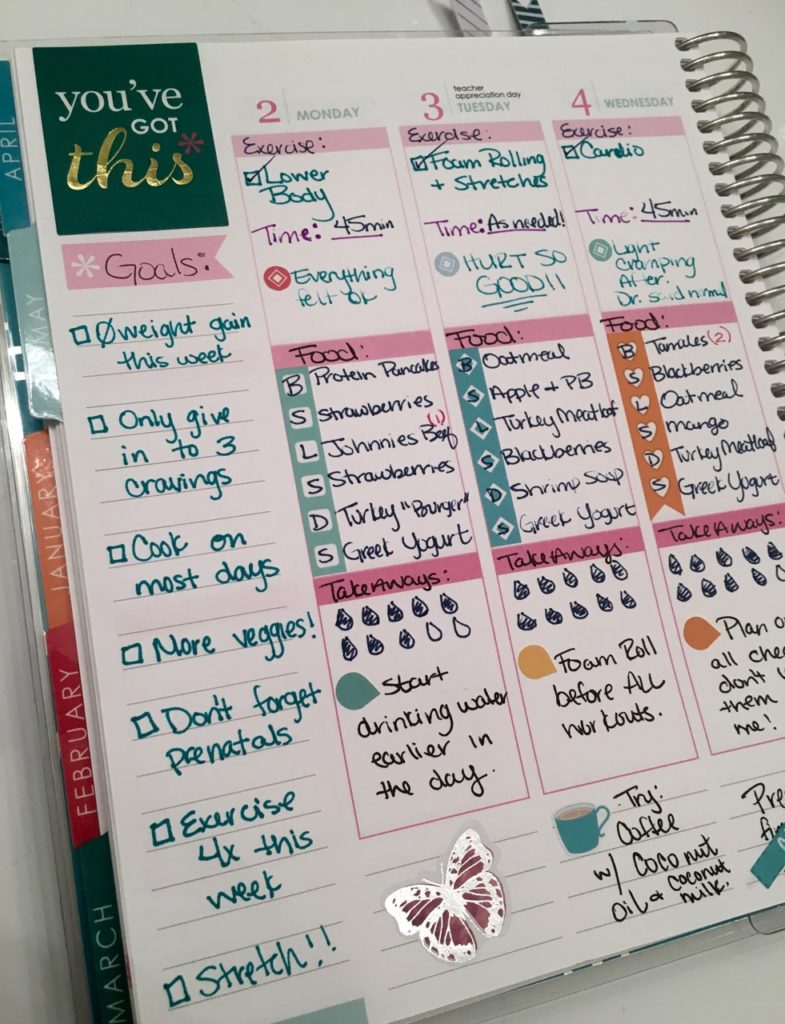 you've
GOT
this
Goals:
Ø weight gain
this week
Only give
in to 3
cravings
Cook on
most days
More veggies!
Don't forget
prenatals
Exercise
4x this
week
Stretch!!
2 MONDAY
Exercise:
Lower
Body
Time: 45min
Everything
felt ok
Food:
B Protein Pancakes
S Strawberries
(1)
L Johnnies Beef
S Strawberries
D Turkey "Bourger"
S Greek Yogurt
TakeAways:
Start
drinking water
earlier in
the day.
teacher
appreciation day
3 TUESDAY
Exercise:
Foam Rolling
+ Stretches
Time: As needed!
HURT SO
GOOD!!
Food:
B Oatmeal
S Apple + PB
L Turkey Meatloaf
S Blackberries
D Shrimp Soup
S Greek Yogurt
TakeAways:
Foam Roll
before ALL
workouts.
Try:
Coffee
w/ coconut
oil & coconut
milk.
4 WEDNESDAY
Exercise:
Cardio
Time: 45min
Light
Cramping
After.
Dr. said normal
Food:
B Tamales (2)
S Blackberries
L Oatmeal
S mango
D Turkey Meatloaf
S Greek Yogurt
TakeAways:
Plan
all
don't
them
me!
APRIL
MAY
JANUARY
FEBRUARY
MARCH